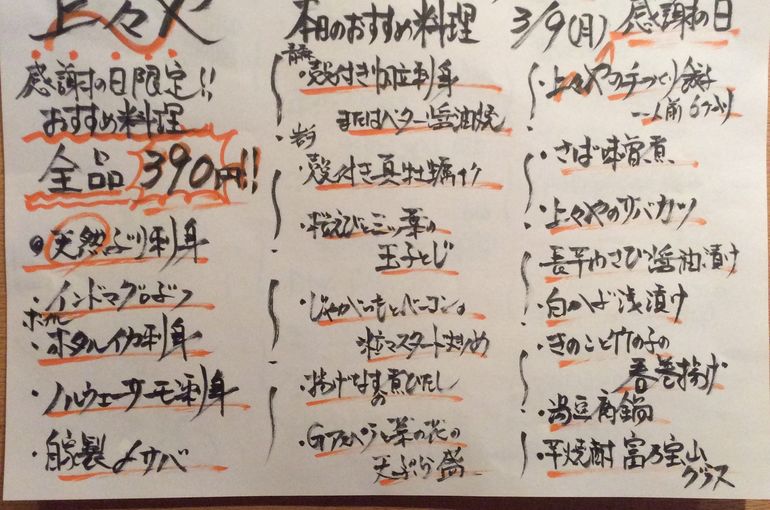 上々や
感謝の日限定!!
おすすめ料理
全品390円!!
天然ぶり刺身
・インドマグロぶつ
ボイル
・ホタルイカ刺身
・ノルウェーサーモン刺身
・自家製〆サバ
本日のおすすめ料理 3/9(月) 感謝の日
・殻付き帆立刺身
またはバター醤油焼
岩手
・殻付き真牡蠣
・桜えびと三ッ葉の
玉子とじ
・じゃがいもとベーコンの
粒マスタード炒め
・揚げなすの煮びたし
・Gアスパラと菜の花の
天ぷら盛
・上々やの手づくり餃子
一人前6つぶり
・さば味噌煮
・上々やのサバカツ
長芋わさび醤油漬け
・白かぶ浅漬け
・きのこと竹の子の
春巻揚げ
・湯豆腐鍋
・芋焼酎 富乃宝山
グラス